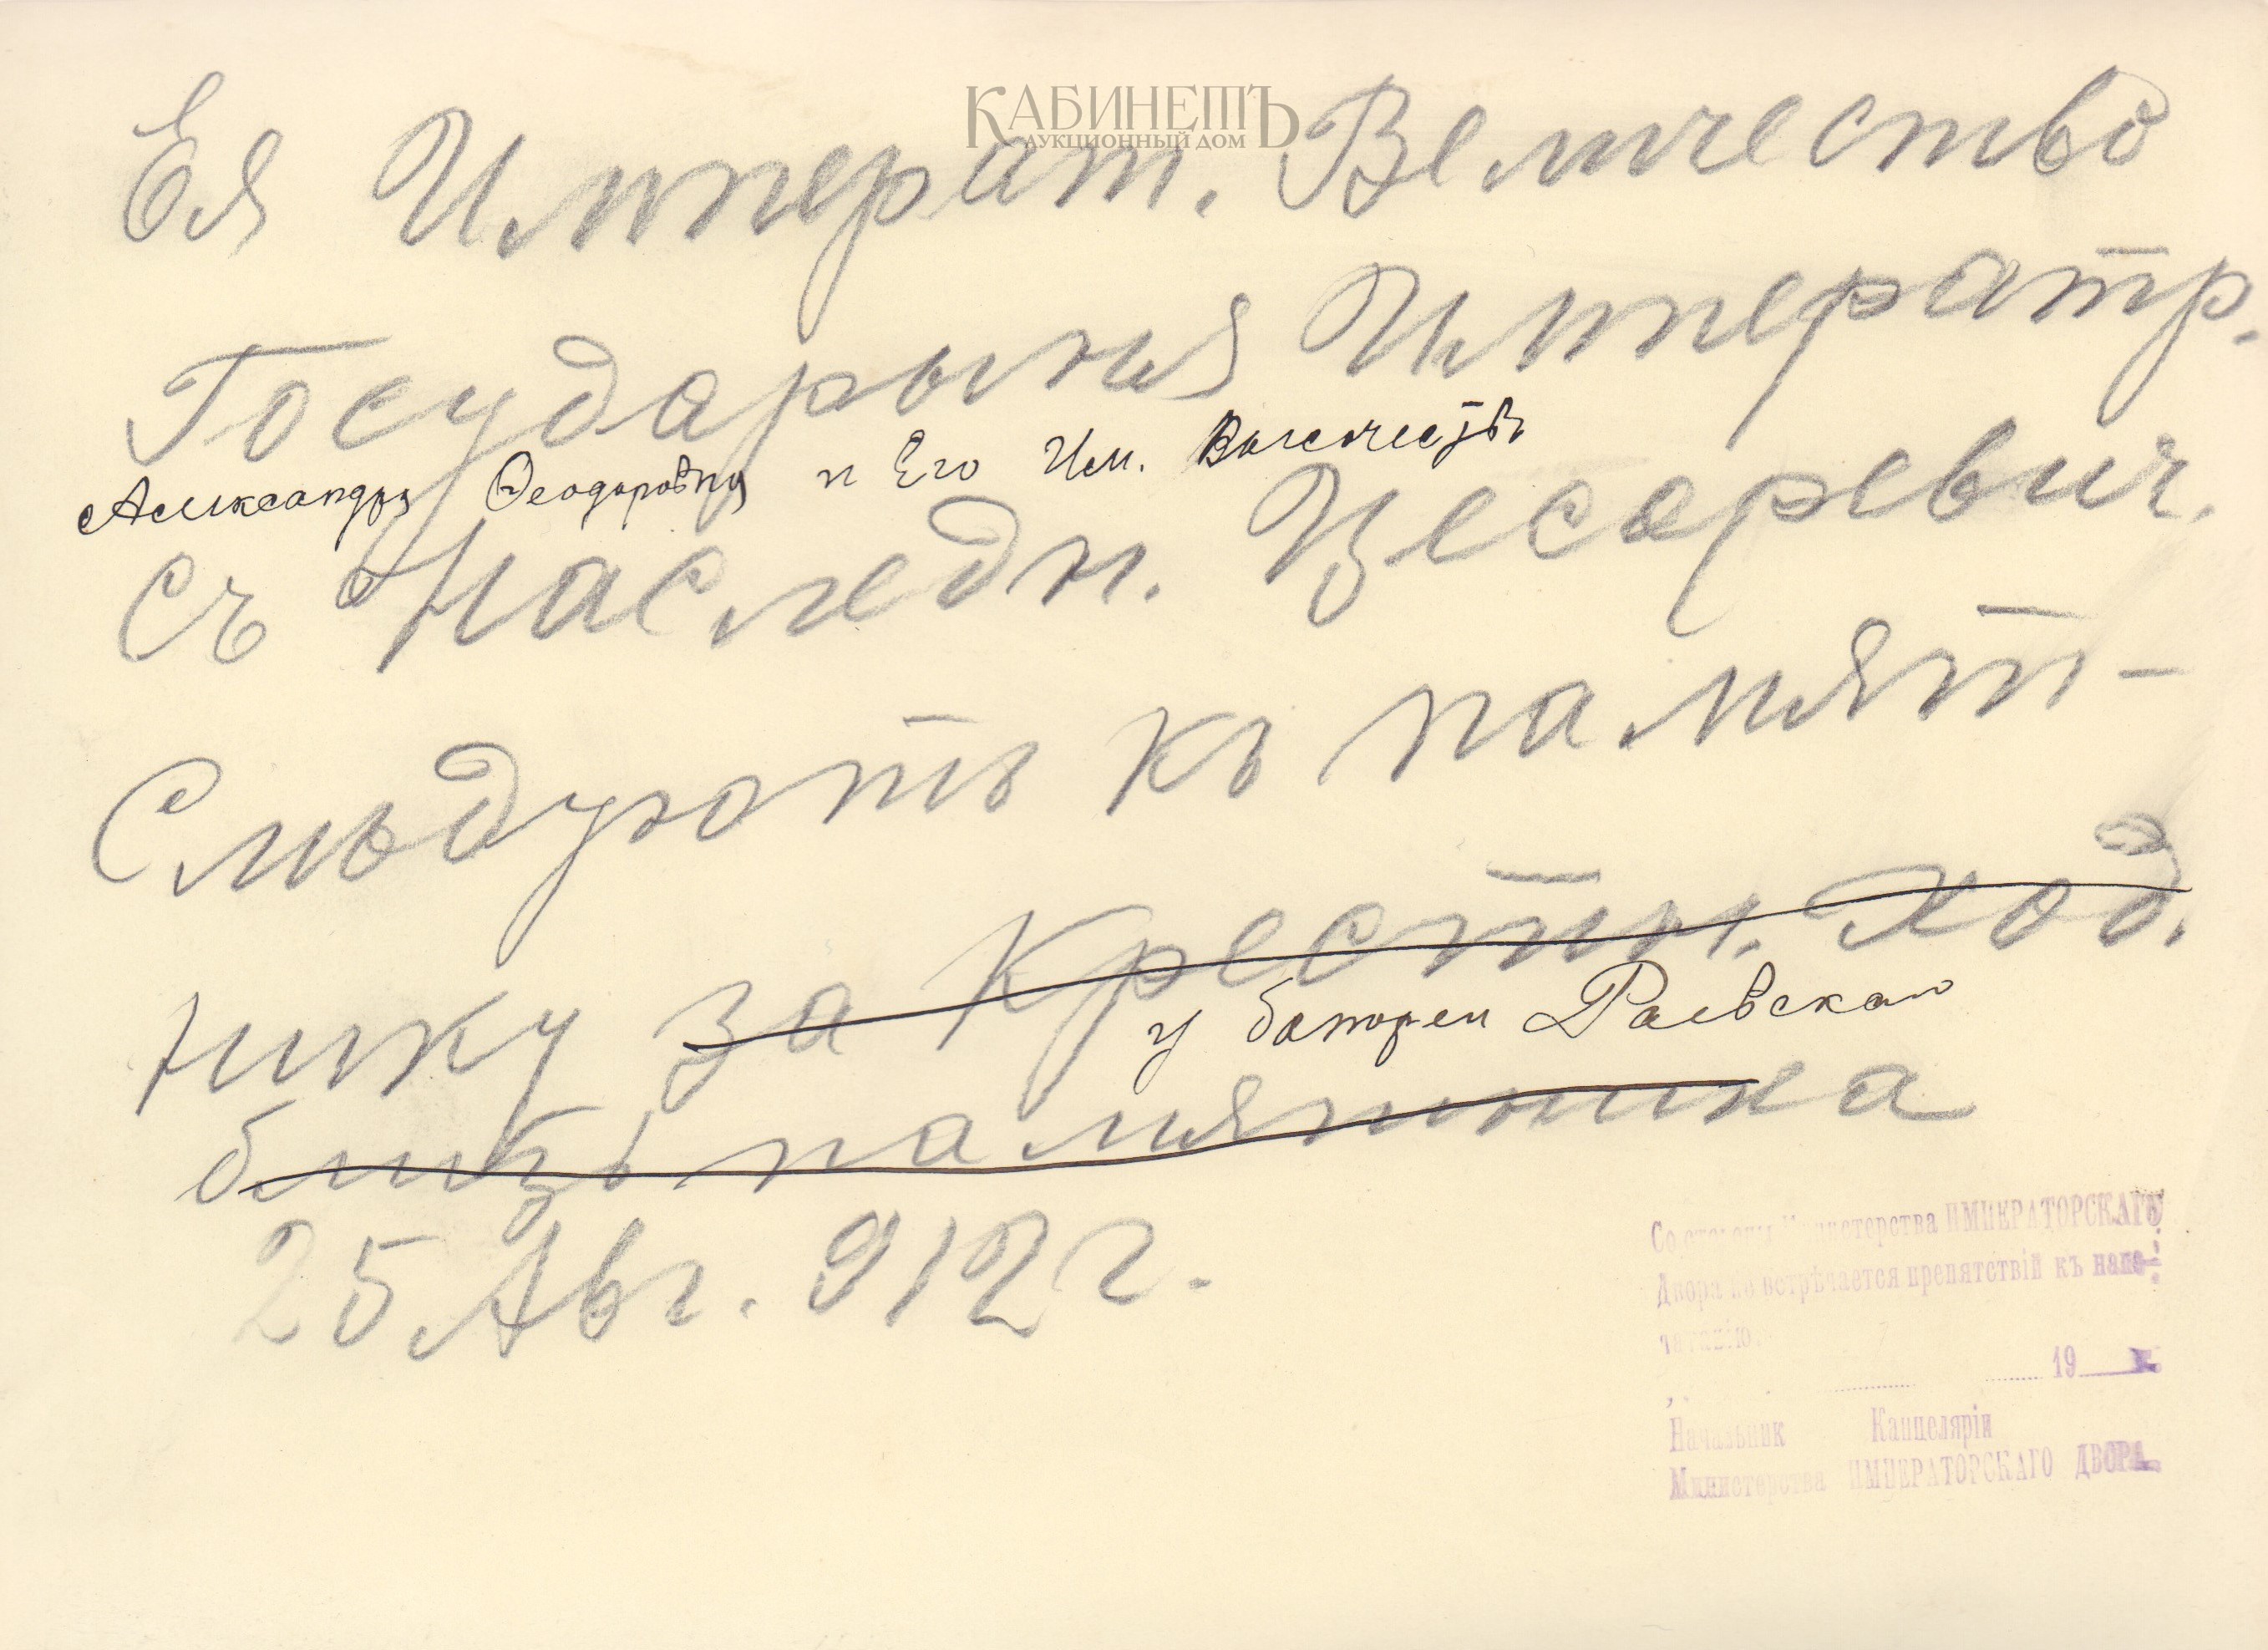 КАБИНЕТЪ
АУКЦИОННЫЙ ДОМ
Ея Императ. Величество
Государыня Императр.
Александра Ѳеодоровна и Его Им. Высочество
съ Наследн. Цесаревич.
Слѣдуютъ къ памят-
нику за Крестн. ход.
у батареи Раевскаго
близъ памятника
25 Авг. 912 г.
Со стороны Министерства ИМПЕРАТОРСКАГО
Двора не встрѣчается препятствій къ напе-
чатанію.
19
Начальник Канцеляріи
Министерства ИМПЕРАТОРСКАГО ДВОРА